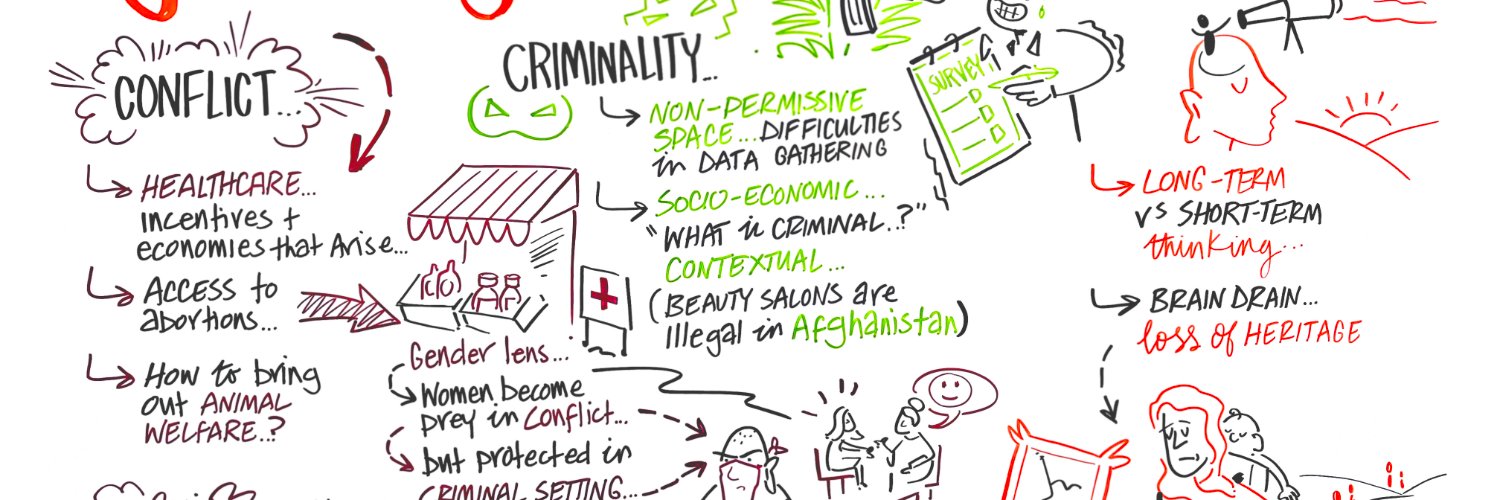 CONFLICT...
HEALTHCARE...
incentives +
economies that Arise...
ACCESS to
abortions...
How to bring
out ANIMAL
WELFARE..?
Gender lens...
Women become
prey in Conflict...
but protected in
CRIMINAL SETTING...
CRIMINALITY...
NON-PERMISSIVE
SPACE...DIFFICULTIES
in DATA GATHERING
SOCIO-ECONOMIC...
"WHAT is CRIMINAL..?"
CONTEXTUAL...
(BEAUTY SALONS are
Illegal in Afghanistan)
SURVEY
LONG-TERM
vs SHORT-TERM
thinking...
BRAIN DRAIN...
loss of HERITAGE